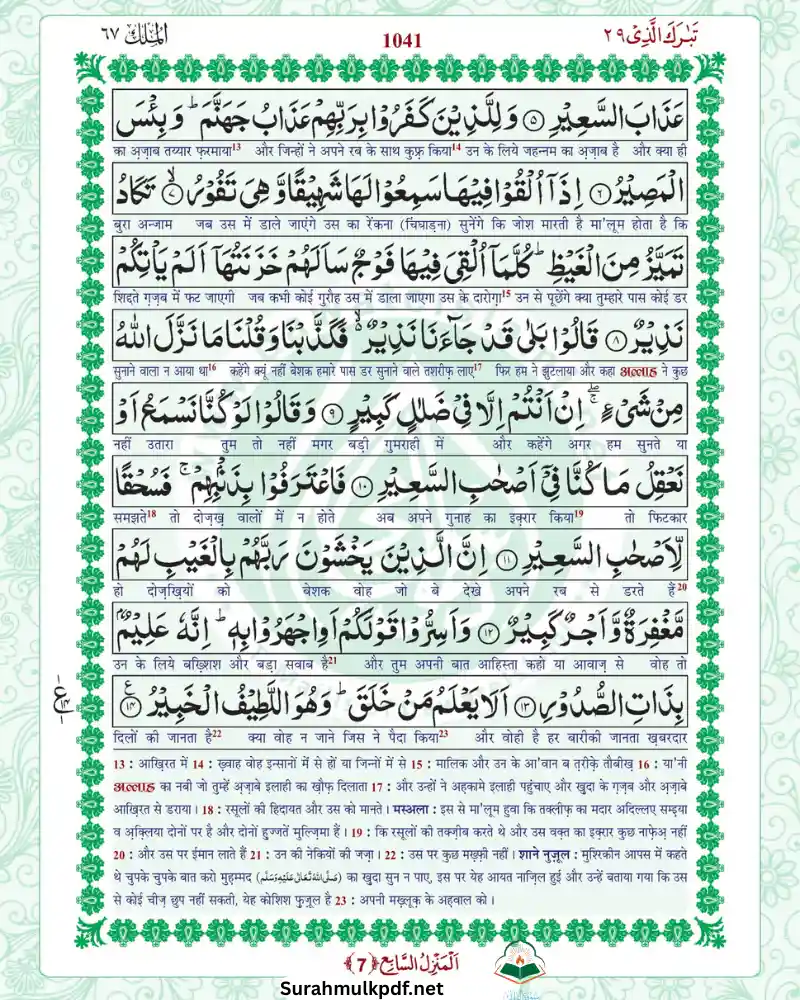 الملك ٦٧
1041
تبٰرك الذى ٢٩
عَذَابَ السَّعِيْرِ ﴿٥﴾ وَ لِلَّذِيْنَ كَفَرُوْا بِرَبِّهِمْ عَذَابُ جَهَنَّمَ ؕ وَ بِئْسَ
का अ़ज़ाब तय्यार फ़रमाया13 और जिन्हों ने अपने रब के साथ कुफ़्र किया14 उन के लिये जहन्नम का अ़ज़ाब है और क्या ही
الْمَصِيْرُ ﴿٦﴾ اِذَاۤ اُلْقُوْا فِيْهَا سَمِعُوْا لَهَا شَهِيْقًا وَّ هِىَ تَفُوْرُ ﴿٧﴾ۙ تَكَادُ
बुरा अन्जाम जब उस में डाले जाएंगे उस का रेंकना (चिंघाड़ना) सुनेंगे कि जोश मारती है मा'लूम होता है कि
تَمَيَّزُ مِنَ الْغَيْظِ ؕ كُلَّمَاۤ اُلْقِىَ فِيْهَا فَوْجٌ سَاَلَهُمْ خَزَنَتُهَاۤ اَلَمْ يَاْتِكُمْ
शिद्दते ग़ज़ब में फट जाएगी जब कभी कोई गुरौह उस में डाला जाएगा उस के दारोग़ा15 उन से पूछेंगे क्या तुम्हारे पास कोई डर
نَذِيْرٌ ﴿٨﴾ قَالُوْا بَلٰى قَدْ جَآءَنَا نَذِيْرٌ ۙ۬ فَكَذَّبْنَا وَ قُلْنَا مَا نَزَّلَ اللّٰهُ
सुनाने वाला न आया था16 कहेंगे क्यूं नहीं बेशक हमारे पास डर सुनाने वाले तशरीफ़ लाए17 फिर हम ने झुटलाया और कहा अल्लाह ने कुछ
مِنْ شَىْءٍ ۚۖ اِنْ اَنْتُمْ اِلَّا فِىْ ضَلٰلٍ كَبِيْرٍ ﴿٩﴾ وَ قَالُوْا لَوْ كُنَّا نَسْمَعُ اَوْ
नहीं उतारा तुम तो नहीं मगर बड़ी गुमराही में और कहेंगे अगर हम सुनते या
نَعْقِلُ مَا كُنَّا فِىْۤ اَصْحٰبِ السَّعِيْرِ ﴿١٠﴾ فَاعْتَرَفُوْا بِذَنْۢبِهِمْ ۚ فَسُحْقًا
समझते18 तो दोज़ख़ वालों में न होते अब अपने गुनाह का इक़रार किया19 तो फिटकार
لِّاَصْحٰبِ السَّعِيْرِ ﴿١١﴾ اِنَّ الَّذِيْنَ يَخْشَوْنَ رَبَّهُمْ بِالْغَيْبِ لَهُمْ
हो दोज़ख़ियों को बेशक वोह जो बे देखे अपने रब से डरते हैं20
مَّغْفِرَةٌ وَّ اَجْرٌ كَبِيْرٌ ﴿١٢﴾ وَ اَسِرُّوْا قَوْلَكُمْ اَوِ اجْهَرُوْا بِهٖ ؕ اِنَّهٗ عَلِيْمٌۢ
उन के लिये बख़्शिश और बड़ा सवाब है21 और तुम अपनी बात आहिस्ता कहो या आवाज़ से वोह तो
بِذَاتِ الصُّدُوْرِ ﴿١٣﴾ اَلَا يَعْلَمُ مَنْ خَلَقَ ؕ وَ هُوَ اللَّطِيْفُ الْخَبِيْرُ ﴿١٤﴾
दिलों की जानता है22 क्या वोह न जाने जिस ने पैदा किया23 और वोही है हर बारीकी जानता ख़बरदार
13 : आख़िरत में 14 : ख़्वाह वोह इन्सानों में से हों या जिन्नों में से 15 : मालिक और उन के आ'वान ब त़रीक़े तौबीख़ 16 : या'नी
अल्लाह का नबी जो तुम्हें अ़ज़ाबे इलाही का ख़ौफ़ दिलाता 17 : और उन्हों ने अहकामे इलाही पहुंचाए और ख़ुदा के ग़ज़ब और अ़ज़ाबे
आख़िरत से डराया। 18 : रसूलों की हिदायत और उस को मानते। मस्अला : इस से मा'लूम हुवा कि तक्लीफ़ का मदार अदिल्लए सम्इ़या
व अ़क़्लिया दोनों पर है और दोनों हुज्जतें मुल्ज़िमा हैं। 19 : कि रसूलों की तक्ज़ीब करते थे और उस वक़्त का इक़रार कुछ नाफ़ेअ़ नहीं
20 : और उस पर ईमान लाते हैं 21 : उन की नेकियों की जज़ा। 22 : उस पर कुछ मख़्फ़ी नहीं। शाने नुज़ूल : मुश्रिकीन आपस में कहते
थे चुपके चुपके बात करो मुहम्मद (صَلَّى اللهُ تَعَالٰى عَلَيْهِ وَسَلَّم) का ख़ुदा सुन न पाए, इस पर येह आयत नाज़िल हुई और उन्हें बताया गया कि उस
से कोई चीज़ छुप नहीं सकती, येह कोशिश फ़ुज़ूल है 23 : अपनी मख़्लूक़ के अहवाल को।
اَلْمَنْزِلُ السَّابِع ﴿7﴾
Surahmulkpdf.net